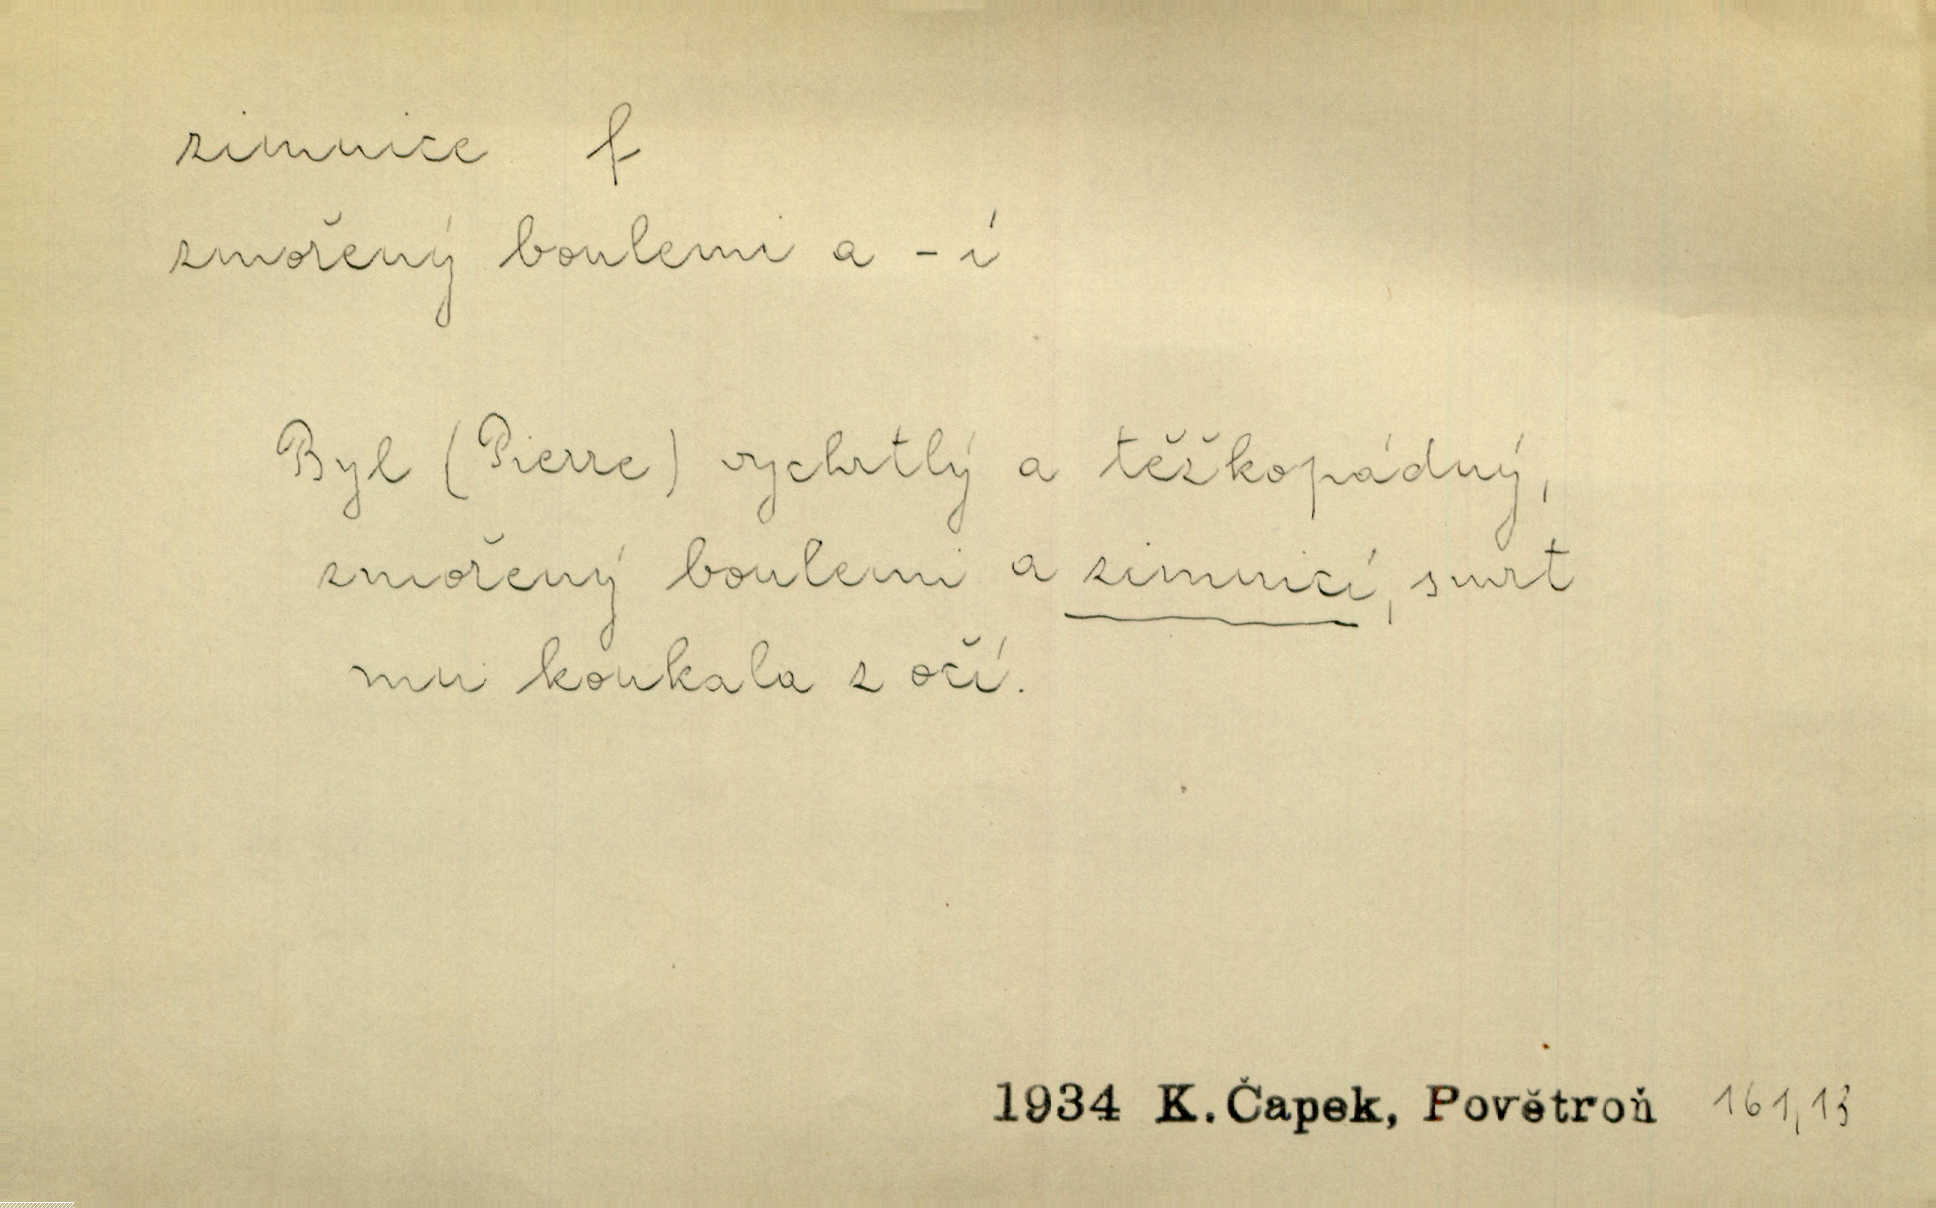 zimnice f
zmořený boulemi a -í
Byl (Pierre) vychrtlý a těžkopádný,
zmořený boulemi a zimnicí, smrt
mu koukala z očí.
1934 K. Čapek, Povětroň 161,13